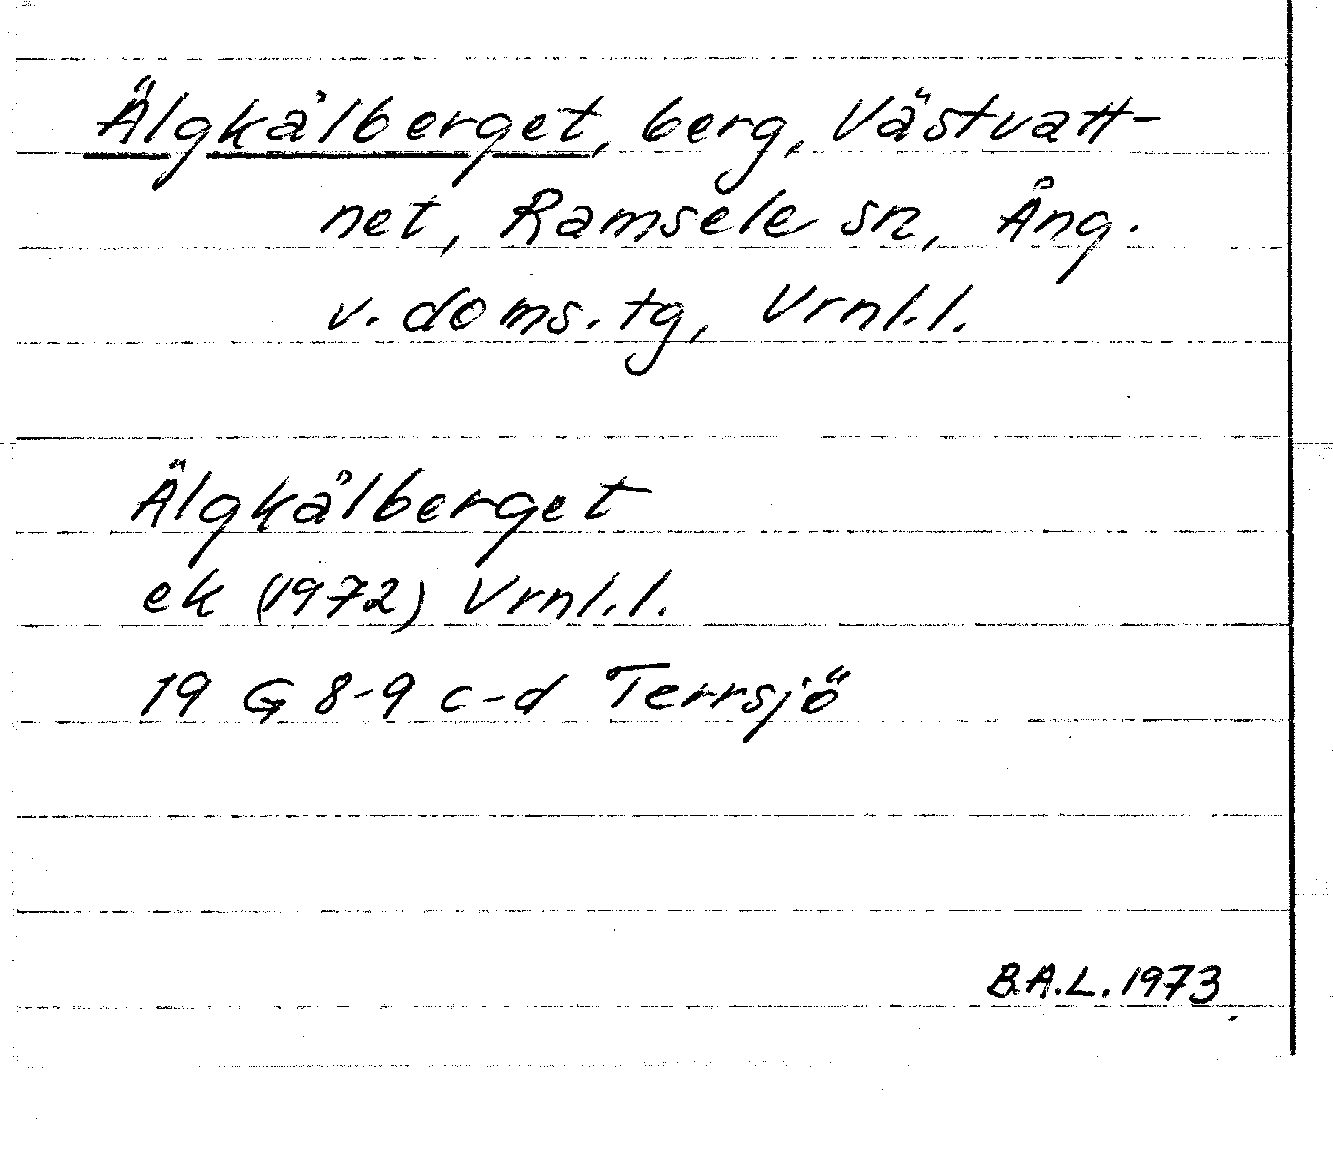 Älgkålberget, berg, Västvatt-
net, Ramsele sn, Ång.
v. doms. tg, Vrnl.l.
Älgkålberget
ek (1972) Vrnl.l.
19 G 8-9 c-d Terrsjö
B.A.L. 1973